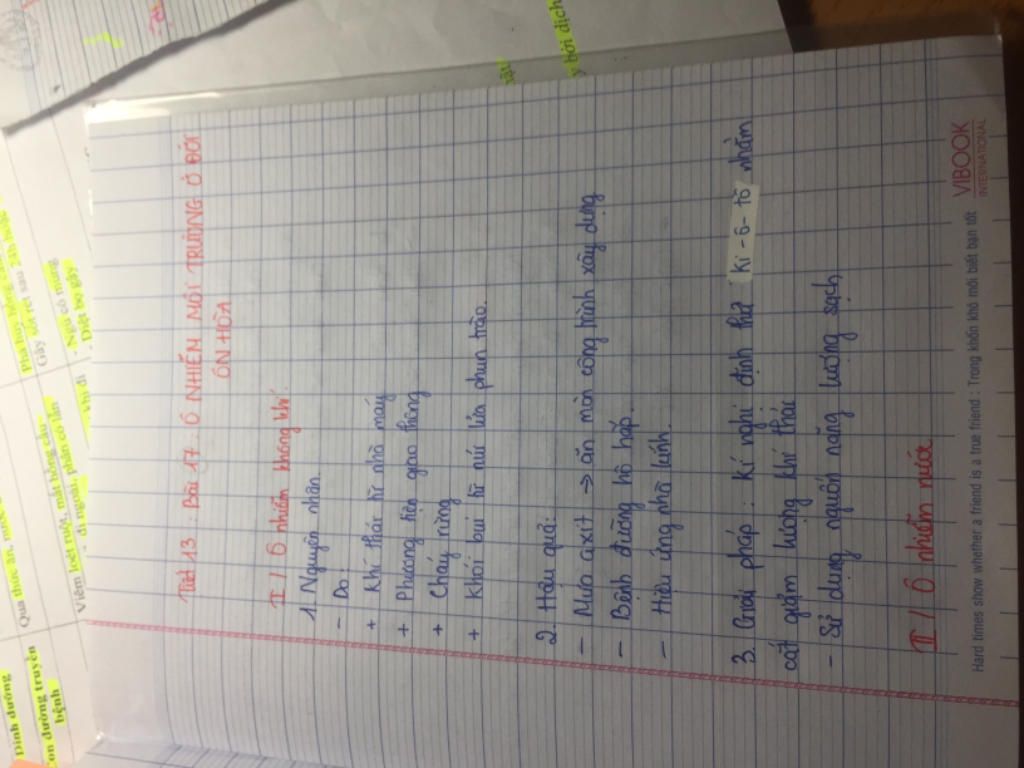 Tiết 13: Bài 17: Ô NHIỄM MÔI TRƯỜNG Ở ĐỚI
ÔN HÒA
I/ Ô nhiễm không khí.
1. Nguyên nhân
- Do:
+ Khí thải từ nhà máy
+ Phương tiện giao thông
+ Cháy rừng
+ Khói bụi từ núi lửa phun trào.
2. Hậu quả:
- Mưa axit → ăn mòn công trình xây dựng
- Bệnh đường hô hấp.
- Hiệu ứng nhà kính.
3. Giải pháp: kí nghị định thư Ki-ô-tô nhằm
cắt giảm lượng khí thải
- Sử dụng nguồn năng lượng sạch
II/ Ô nhiễm nước
Hard times show whether a friend is a true friend : Trong khốn khó mới biết bạn tốt
VIBOOK
INTERNATIONAL
Dinh dưỡng
Con đường truyền
bệnh
Qua thức ăn, nước
Viêm loét ruột, mất hồng cầu
đi ngoài, phân có lẫn
Phá hủy hồng cầu
Gây sốt rét sau 24h hoặc
- khi đi
- Ngủ có màng
- Diệt bọ gậy
y bởi dịch